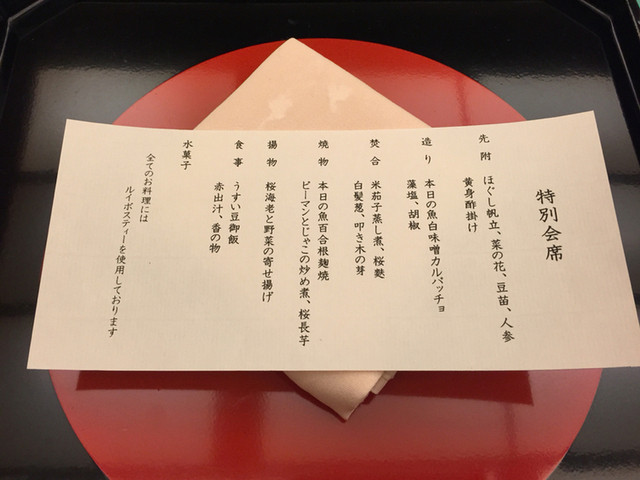 特別会席
先附 ほぐし帆立、菜の花、豆苗、人参
黄身酢掛け
造り 本日の魚白味噌カルパッチョ
藻塩、胡椒
焚合 米茄子蒸し煮、桜麩
白髪葱、叩き木の芽
焼物 本日の魚百合根麹焼
ピーマンとじゃこの炒め煮、桜長芋
揚物 桜海老と野菜の寄せ揚げ
食事 うすい豆御飯
赤出汁、香の物
水菓子
全てのお料理には
ルイボスティーを使用しております